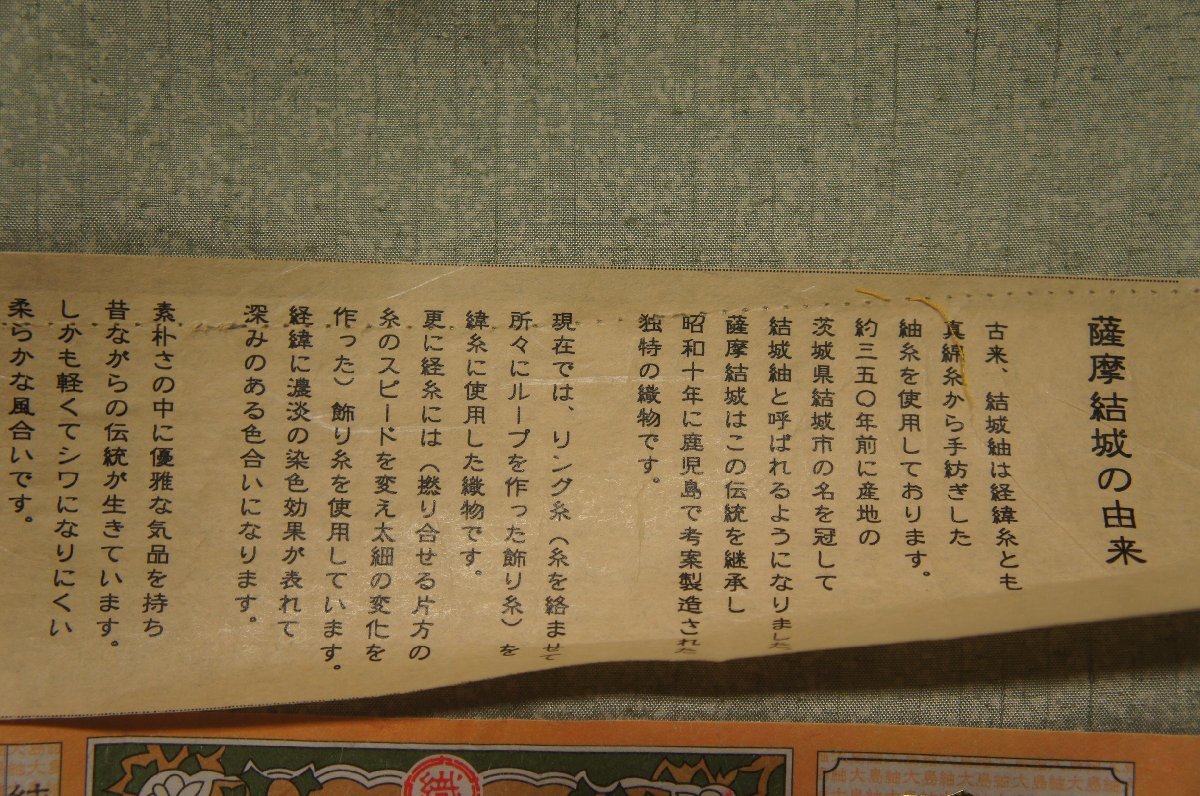 薩摩結城の由来
古来、結城紬は経緯糸とも
真綿糸から手紡ぎした
紬糸を使用しております。
約三五〇年前に産地の
茨城県結城市の名を冠して
結城紬と呼ばれるようになりました
薩摩結城はこの伝統を継承し
昭和十年に鹿児島で考案製造された
独特の織物です。
現在では、リング糸(糸を絡ませて
所々にループを作った飾り糸)を
緯糸に使用した織物です。
更に経糸には(撚り合せる片方の
糸のスピードを変え太細の変化を
作った)飾り糸を使用しています。
経緯に濃淡の染色効果が表れて
深みのある色合いになります。
素朴さの中に優雅な気品を持ち
昔ながらの伝統が生きています。
しかも軽くてシワになりにくい
柔らかな風合いです。
大島紬大島紬大島紬大島紬大島紬